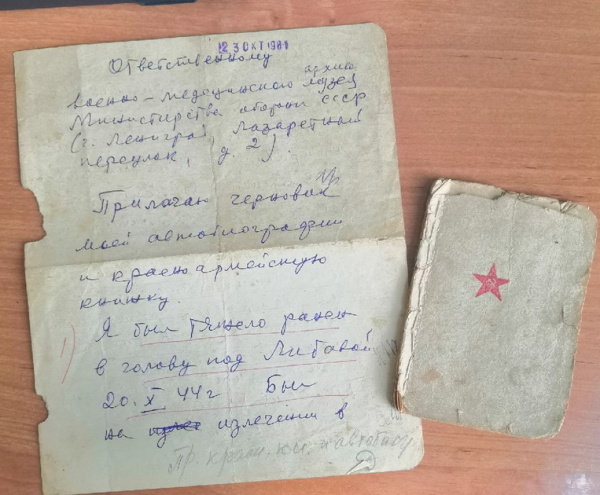 23 ОКТ 1981
Ответственному
архива
военно-медицинского музея
Министерства обороны СССР
(г. Ленинград, Лазаретный
переулок, д. 2).
Прилагаю черновик
моей автобиографии
и красноармейскую
книжку.
1) Я был тяжело ранен
в голову под Либавой
20.X 44г Был
на излечении в
Пр. красн. кн. и автобиог